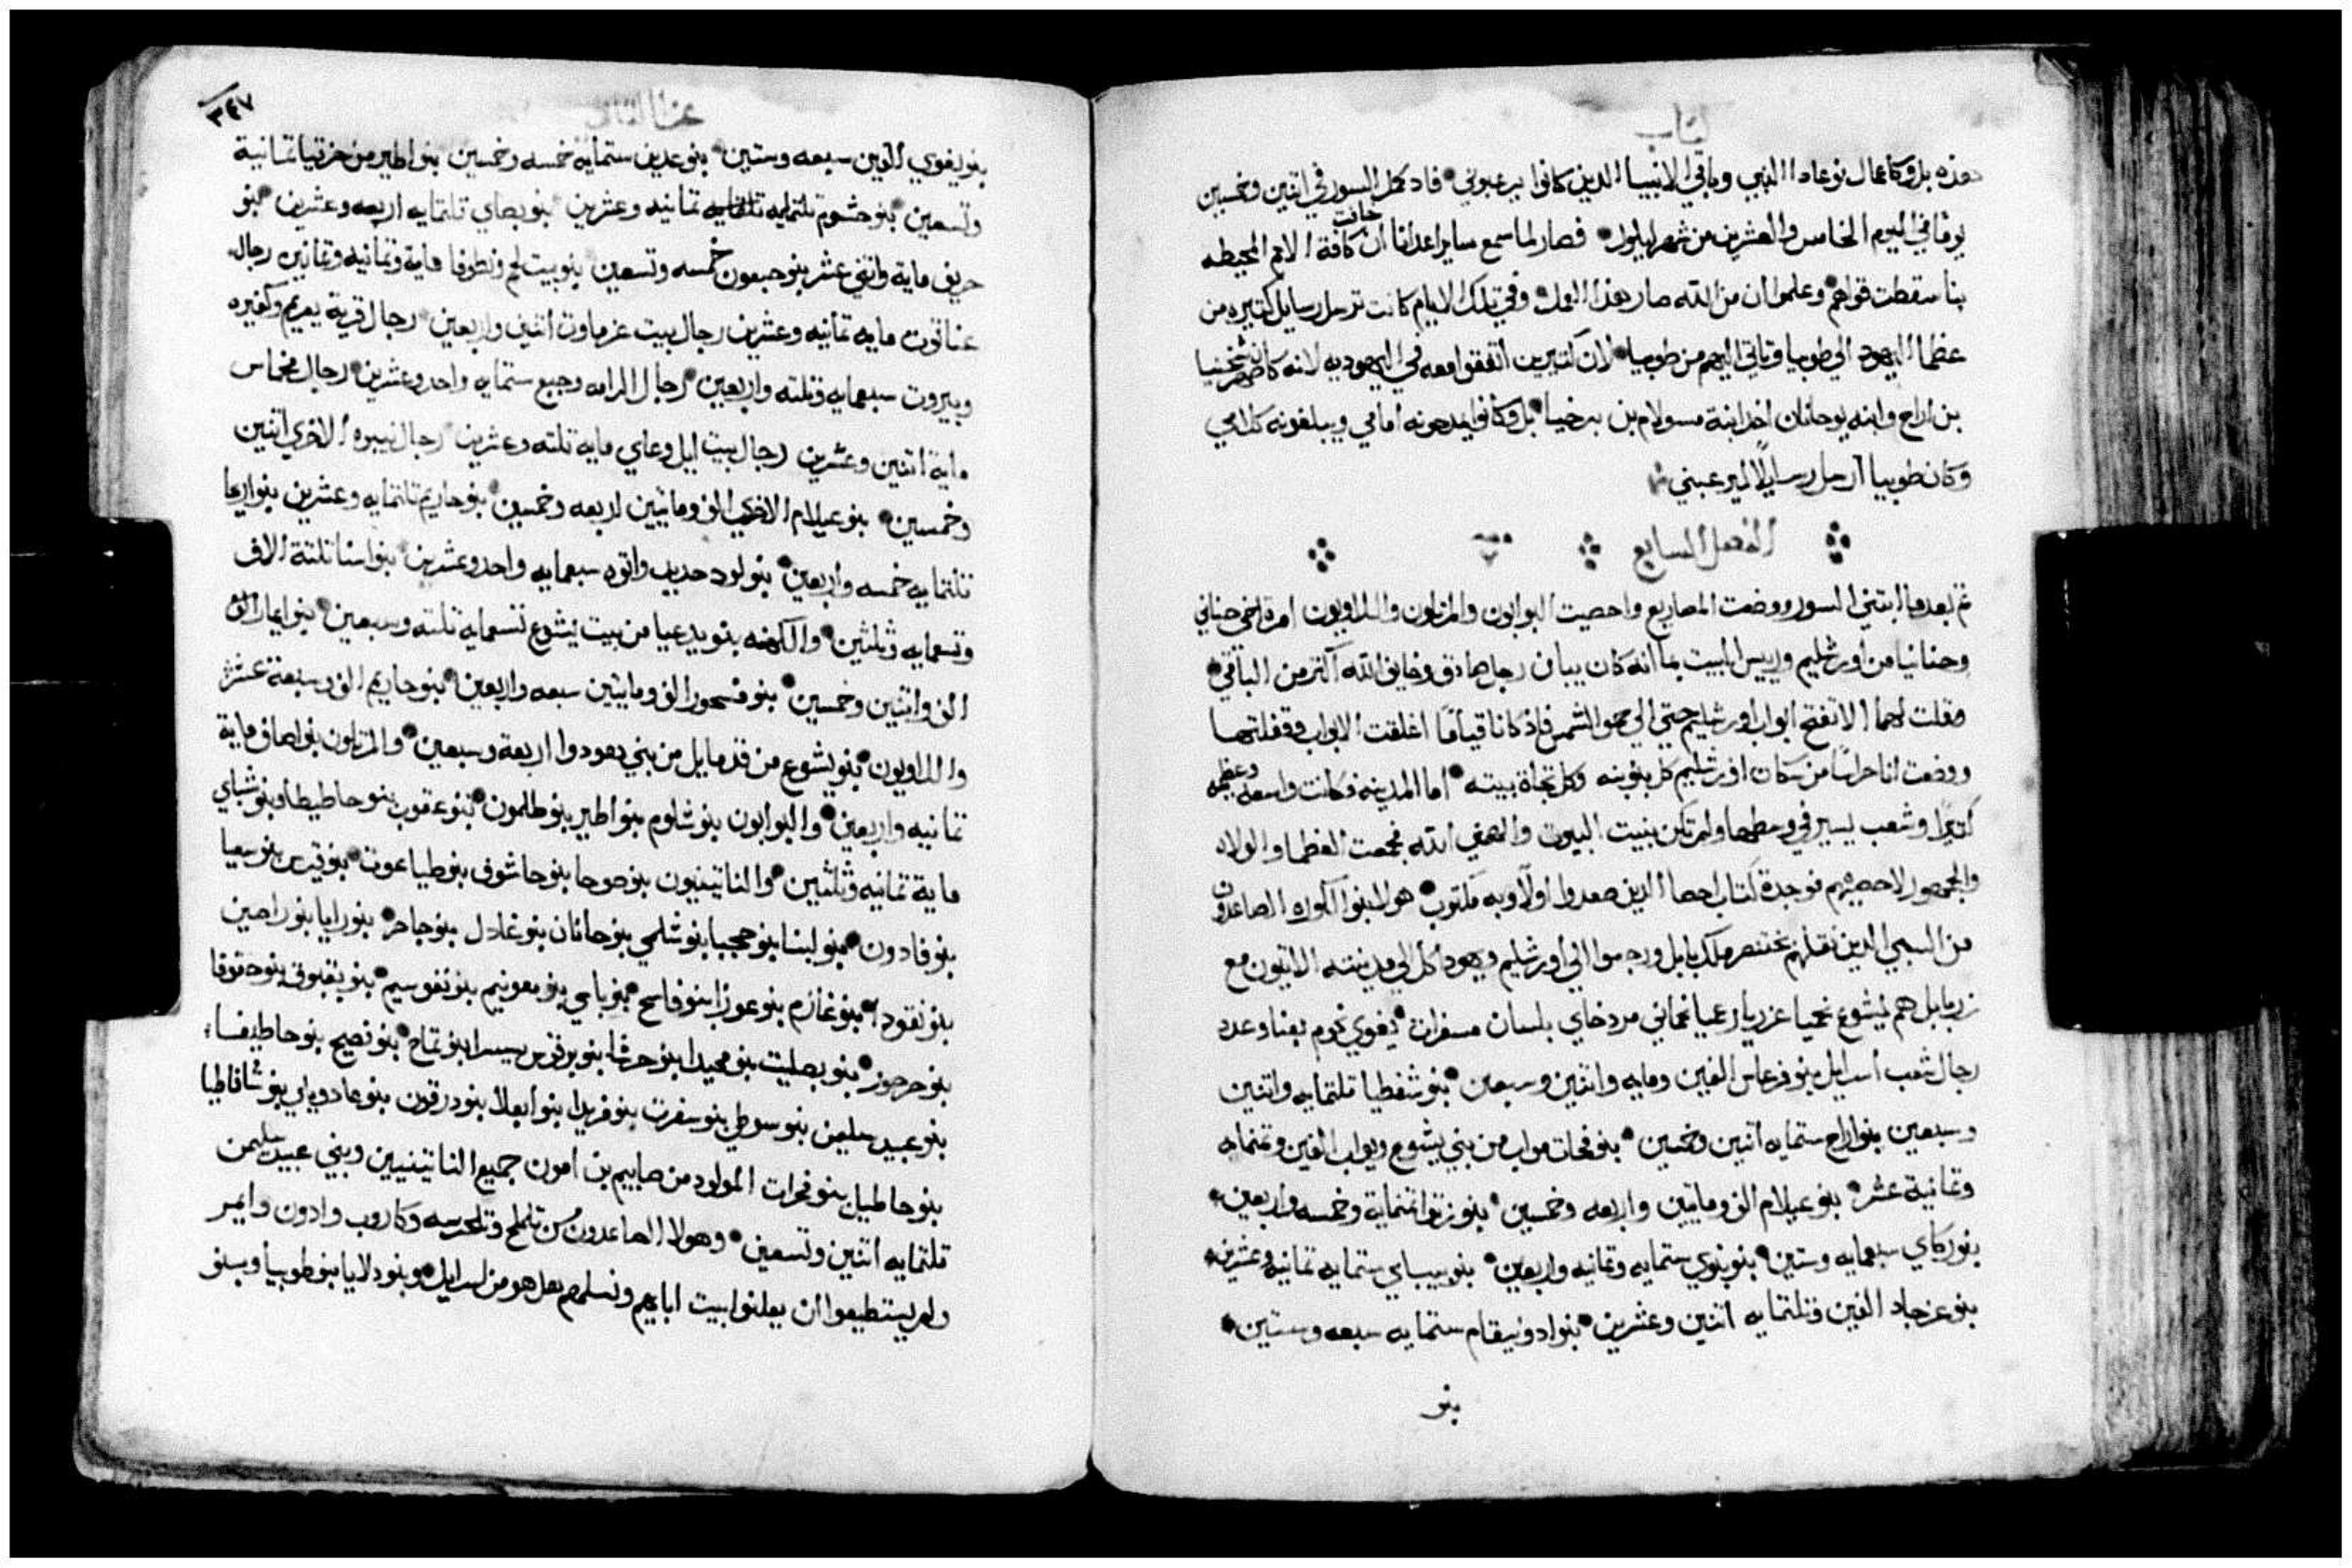 كتاب
هذه بل وكاعمال نوعاد النبي وباقي الانبيا الذين كانوا يرعبوني فاد كمل السور في اتنين وخمسين
يومًا في اليوم الخامس والعشرين من شهر ايلول فصار لما سمع ساير اعدانا ان خافت كافة الامم المحيطه
بنا سقطت قواهم وعلموا ان من الله صار هذا العمل وفي تلك الايام كانت ترسل رسايل كتيره من
عظما اليهود الي طوبيا وتاتي اليهم من طوبيا لان كتيرين اتفقوا معه في اليهوديه لانه كان صهر شخنيا
بن اراح وابنه يوحانان اخد ابنة مسولام بن برخيا بل وكانوا يمدحونه امامي ويبلغونه كلامي
وكان طوبيا ارسل رسايلًا ليرعبني
الفصل السابع
تم بعدما ابتني السور ووضعت المصاريع واحصيت البوابون والمرتلون واللاويون امرة اخي حناني
وحنانيا من اورشليم ورييس البيت بما انه كان يبان رجل صادق وخايف الله اكتر من الباقي
فقلت لهما لا تفتح ابواب اورشليم حتي الي حمو الشمس فاذ كانا قيامًا اغلقت الابواب وقفلتها
ووضعت انا حراسًا من سكان اورشليم كل بنوبته وكل تجاة بيته اما المدينه فكانت واسعه وعظيمه
كتيرًا وشعب يسير في وسطها ولم تكن بنيت البيوت والهمني الله فجمعت العظما والولاه
والجمهور لاحصيهم فوجدة كتاب احصا الذين صعدوا اولًا وبه مكتوب هولا بنوا الكوره الصاعدون
من السبي الذين نقلهم بختنصر ملك بابل ورجعوا الي اورشليم ويهودا كل الي مدينته الاتيون مع
زربابل هم يشوع نحميا عزريا رعميا نحماني مردخاي بلسان مسفرات يغوي نحوم بعنا وعدد
رجال شعب اسرايل بنو فرعاس الفين ومايه واتنين وسبعين بنو شفطيا تلتمايه واتنين
وسبعين بنو اراح ستمايه اتنين وخمسين بنو فحات مواب من بني يشوع ويواب الفين وتمنمايه
وتمانية عشر بنو عيلام الف وماتين واربعه وخمسين بنو زتوا تمنماية وخمسه واربعين
بنو زكاي سبعمايه وستين بنو بنوي ستمايه وتمانيه واربعين بنو بيباي ستمايه تمانيه وعشرين
بنو عزجاد الفين وتلتمايه اتنين وعشرين بنو ادونيقام ستمايه سبعه وستين
بنو
٣٤٧
عزرا التاني
بنو يغوي الفين سبعه وستين بنو عدين ستمايه خمسه وخمسين بنو اطير من حزقيا تمانية
وتسعين بنو حشوم تلتمايه تمانيه وعشرين بنو بصاي تلتمايه اربعه وعشرين بنو
حريف ماية واتني عشر بنو جبعون خمسه وتسعين بنو بيت لحم ونطوفا ماية وتمانيه وتمانين رجال
عناتوت مايه تمانيه وعشرين رجال بيت عزماوت اتنين واربعين رجال قرية يعريم وكفيره
وبيروت سبعمايه وتلته واربعين رجال الرامه وجبع ستمايه واحد وعشرين رجال مخماس
ماية اتنين وعشرين رجال بيت ايل وعاي مايه تلته وعشرين رجال نيبره الاخري اتنين
وخمسين بنو عيلام الاخر الف وماتين اربعه وخمسين بنو حاريم تلتمايه وعشرين بنو اريحا
تلتمايه خمسه واربعين بنو لود حديب واتوه سبعمايه واحد وعشرين بنو اسناتلتة الاف
وتسعمايه وثلثين والكهنه بنو يدعيا من بيت يشوع تسعمايه تلته وسبعين بنو ايمار الف
الف واتنين وخمسين بنو فسحور الف ومايتين سبعه واربعين بنو حاريم الف وسبعة عشر
واللاويون بنو يشوع من قدمايل من بني يهودوا اربعة وسبعين والمرتلون بنو اصاف ماية
تمانيه واربعين والبوابون بنو شلوم بنو اطير بنو طلمون بنو عقوب بنو حاطيطا وبنو شباي
ماية تمانيه وثلثين والناتينيون بنو صوحا بنو حاشوف بنو طباعوت بنو قيرس بنو سيعا
بنو فادون بنو لبنا بنو حجبا بنو شلمي بنو حانان بنو غادل بنو جاحر بنو رايا بنو راصين
بنو نقودا بنو غازم بنو عوزا بنو فاسح بنو باسي بنو معونيم بنو نفوسيم بنو بقبوق بنو حقوفا
بنو حرحور بنو بصليت بنو محيدا بنو حرشا بنو برقوس سيسرا بنو تماح بنو نصيح بنو حاطيفا
بنو عبيد سليمن بنو سوطي بنو سفرت بنو فريدا بنو ايعلا بنو درقون بنو شافاطيا
بنو حاطيل بنو فخرات المولود من صابيم بن امون جميع الناتينيين وبني عبيد سليمن
تلتمايه اتنين وتسعين وهولا الصاعدون من تلملح وتلحرسه وكاروب وادون وايمر
ولم يستطيعوا ان يعلنوا بيت اباهم ونسلهم هل هو من اسرايل وبنو دلايا بنو طوبيا وبنو